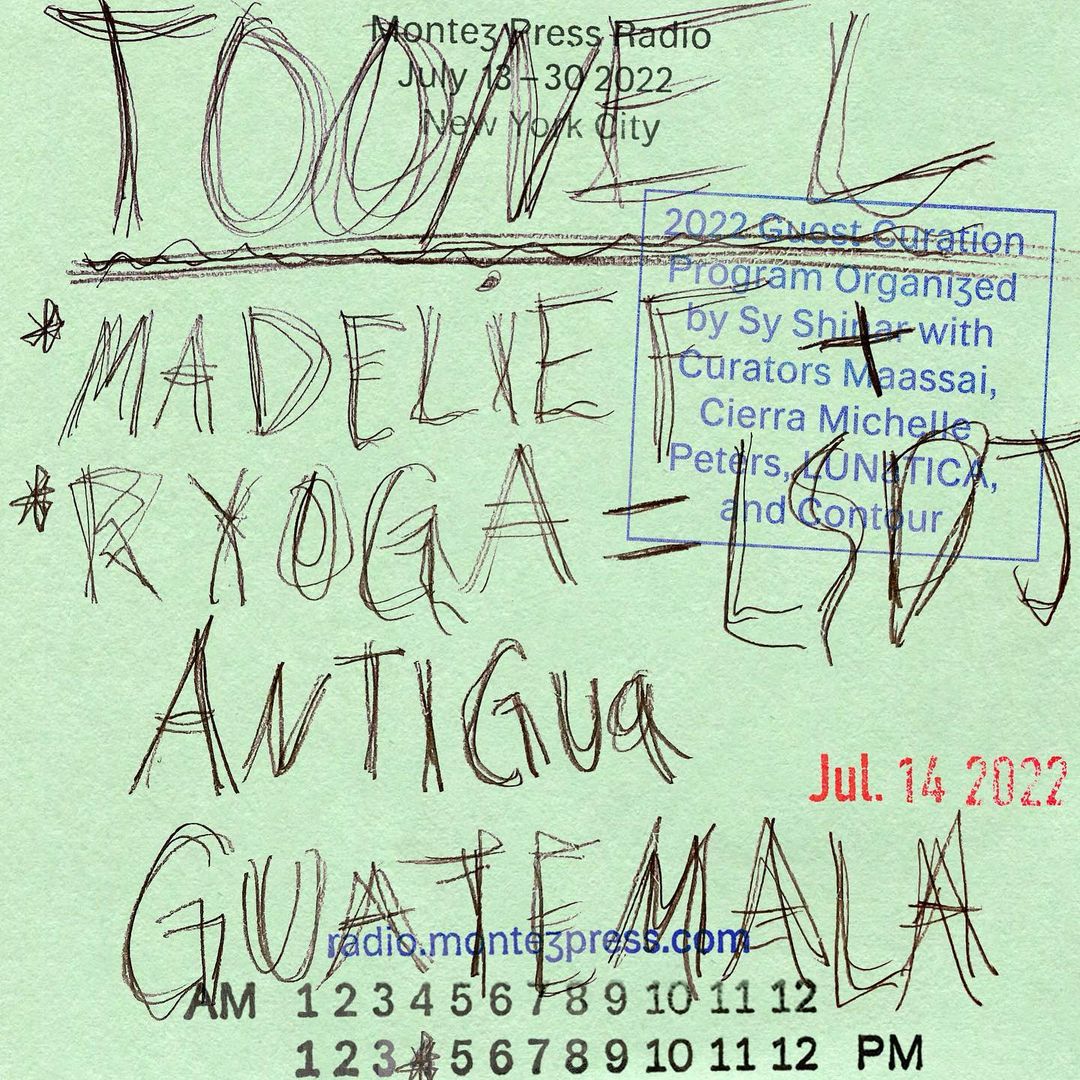 Monteʒ Press Radio
July 13–30 2022
New York City
TOONEL
2022 Guest Curation
Program Organiʒed
by Sy Shinar with
Curators Maassai,
Cierra Michelle
Peters, LUNATICA,
and Contour
* MADELIE F +
* RYOGA = LSDJ
ANTIGUA
Jul. 14 2022
GUATEMALA
radio.monteʒpress.com
AM 1 2 3 4 5 6 7 8 9 10 11 12
1 2 3 4 5 6 7 8 9 10 11 12 PM